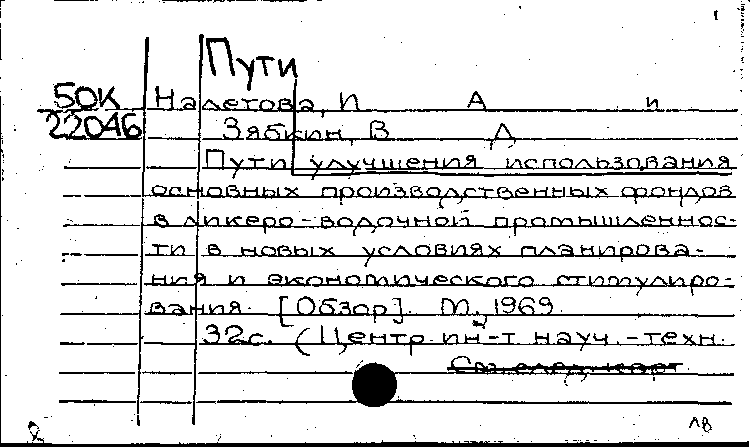 Пути
50К Налетова, И А и
22046 Зябкин, В Д
Пути улучшения использования
основных производственных фондов
в ликеро-водочной промышленнос-
ти в новых условиях планирова-
ния и экономического стимулиро-
вания. [Обзор]. М., 1969.
32с. (Центр. ин-т науч.-техн.
См. след. карт
18